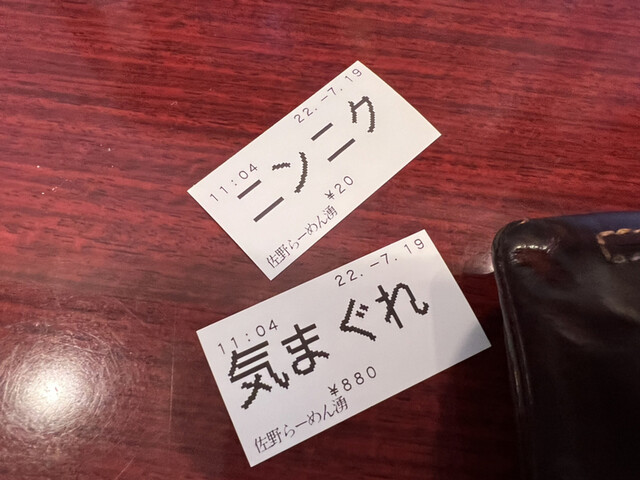 22.-7.19
11:04
ニンニク
¥20
佐野らーめん湧
22.-7.19
11:04
気まぐれ
¥880
佐野らーめん湧